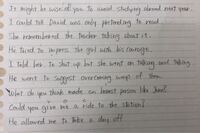 It might be wise of you to avoid studying abroad next year.
I could tell David was only pretending to read
She remembered the teacher talking about it.
He tried to impress the girl with his courage.
I told her to shut up but she went on talking and talking.
He went to suggest overcoming some of them
What do you think made an honest person like Jane?
Could you give me a ride to the station?
He allowed me to take a day off